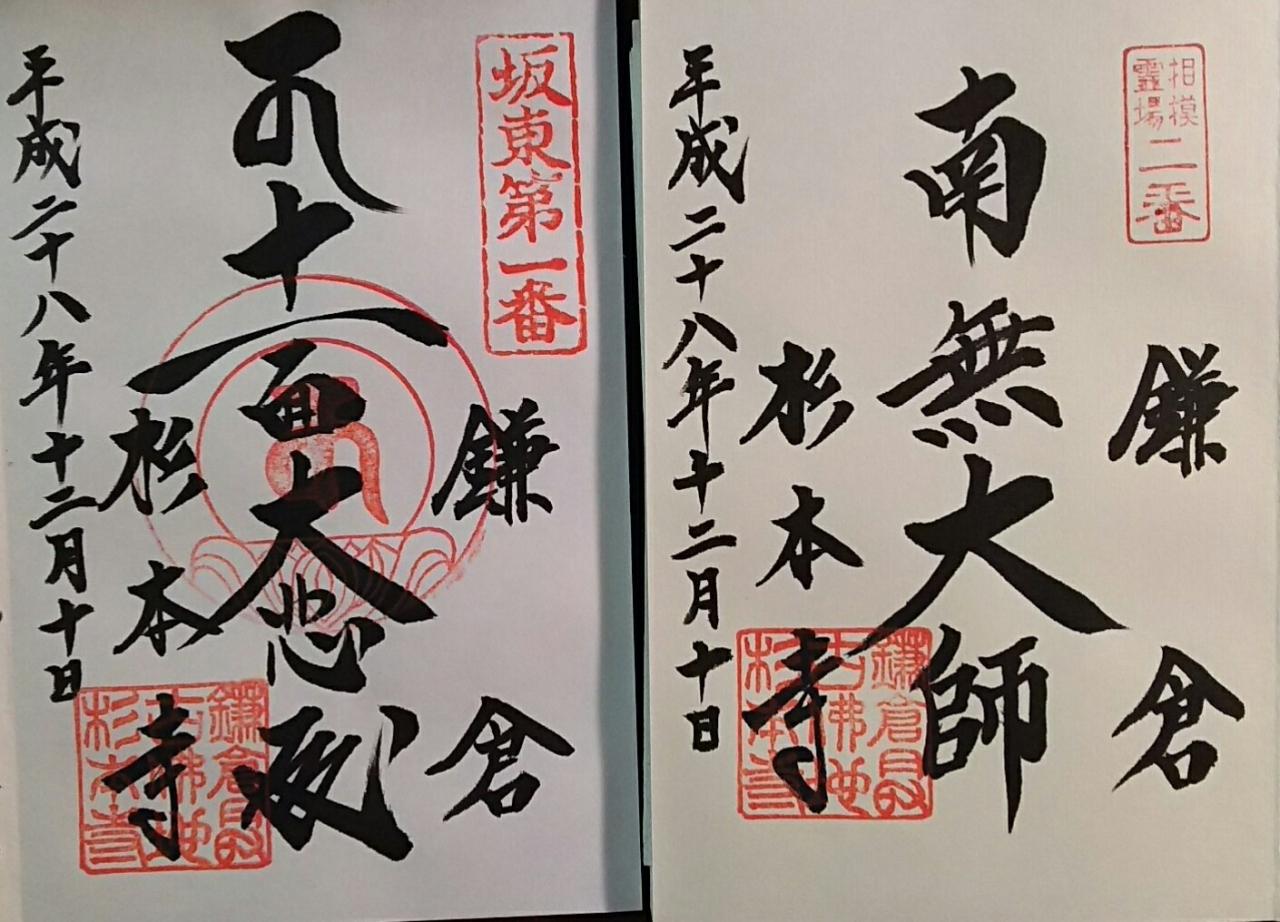 相模
霊場
二番
鎌倉
南無大師
杉本寺
平成二十八年十二月十日
古佛地
杉本寺
坂東第一番
鎌倉
十一面大悲殿
杉本寺
平成二十八年十二月十日
古佛地
杉本寺